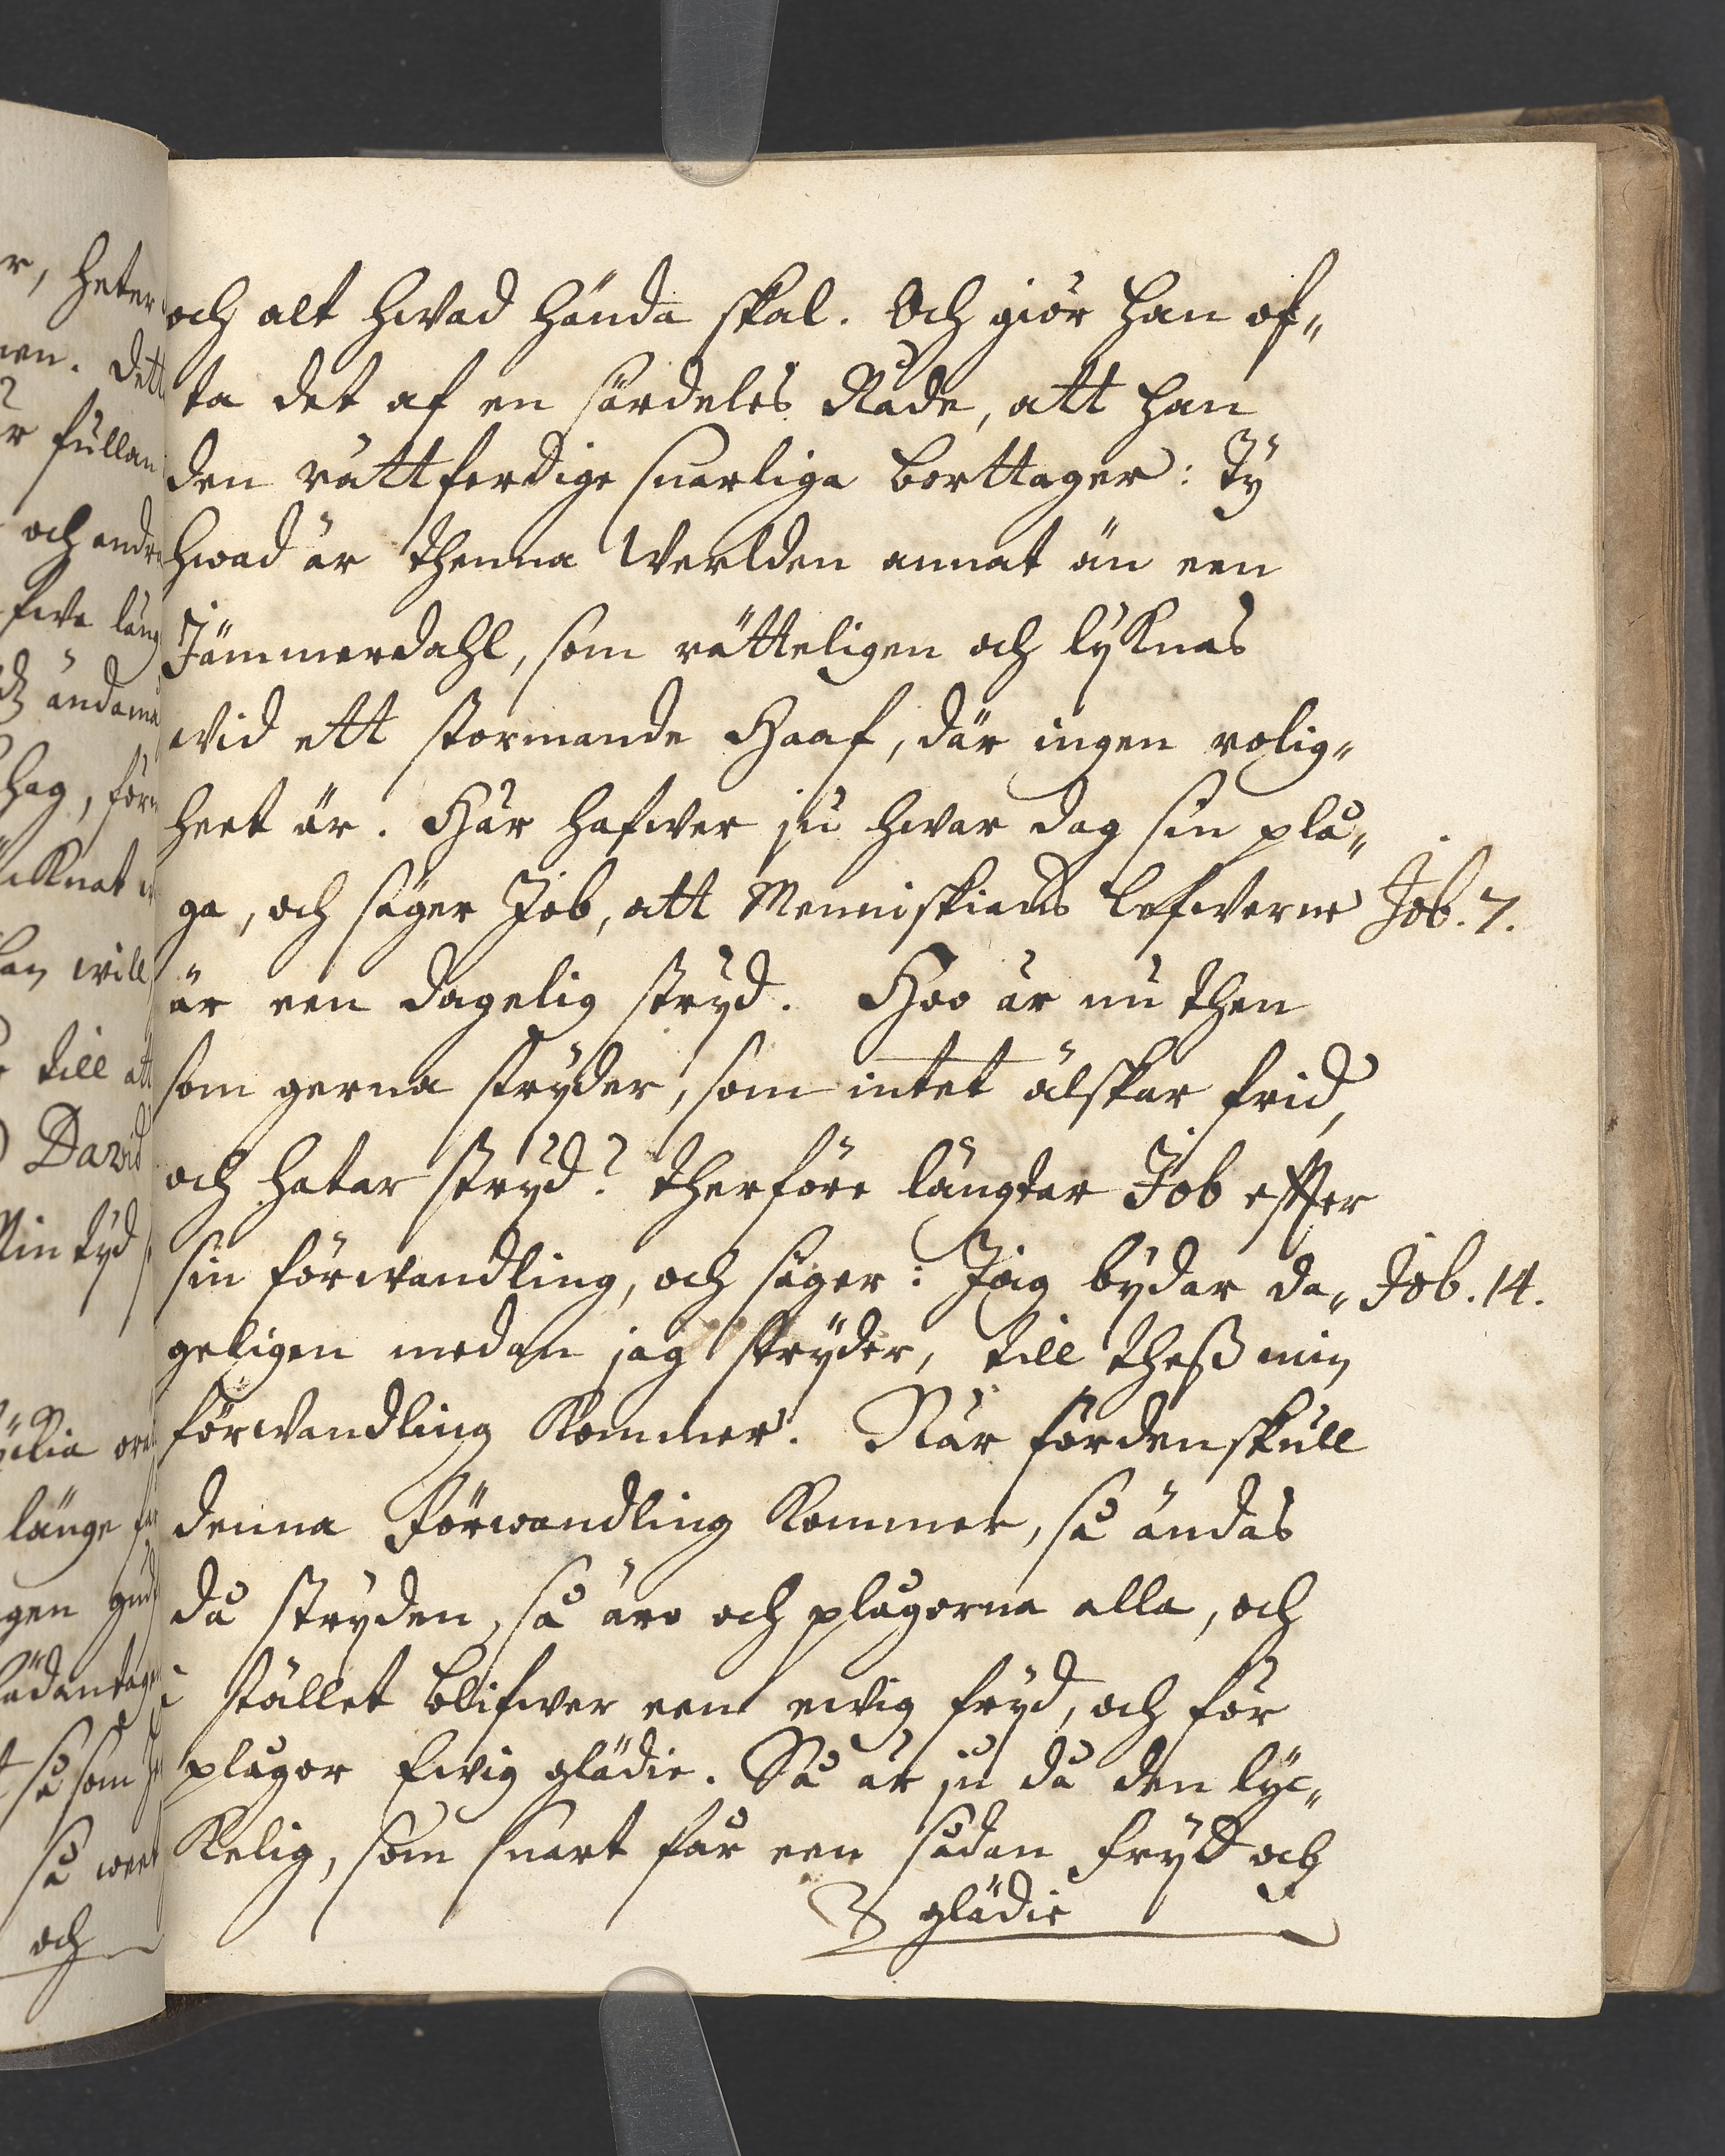 och alt hwad hända skal. Och giör han of„
ta det af en särdeles Nåde, att han
den rättferdige snarliga borttager: Ty
hwad är thenna Werlden annat än een
Jämmerdahl, som rätteligen och lyknas
wid ett stormande Haaf, där ingen rolig„
heet är. Här hafwer ju hwar dag sin plå„
ga, och säger Job, att Menniskians lefwerne
Job. 7.
är een dagelig stryd. Hoo är nu then
som gerna stryder, som intet älskar frid,
och hatar stryd? therföre längtar Job effter
sin förwandling, och säger: Jag bydar da„
Job. 14.
geligen medan jag stryder, till theß min
förwandling kommer. När fördenskull
denna förwandling kommer, så ändas
då stryden, så äro och plågorna alla, och
i stället blifwer een ewig fryd, och för
plågor Ewig glädie. Så är ju då den lyc„
kelig, som snart får een sådan fryd och
glädie